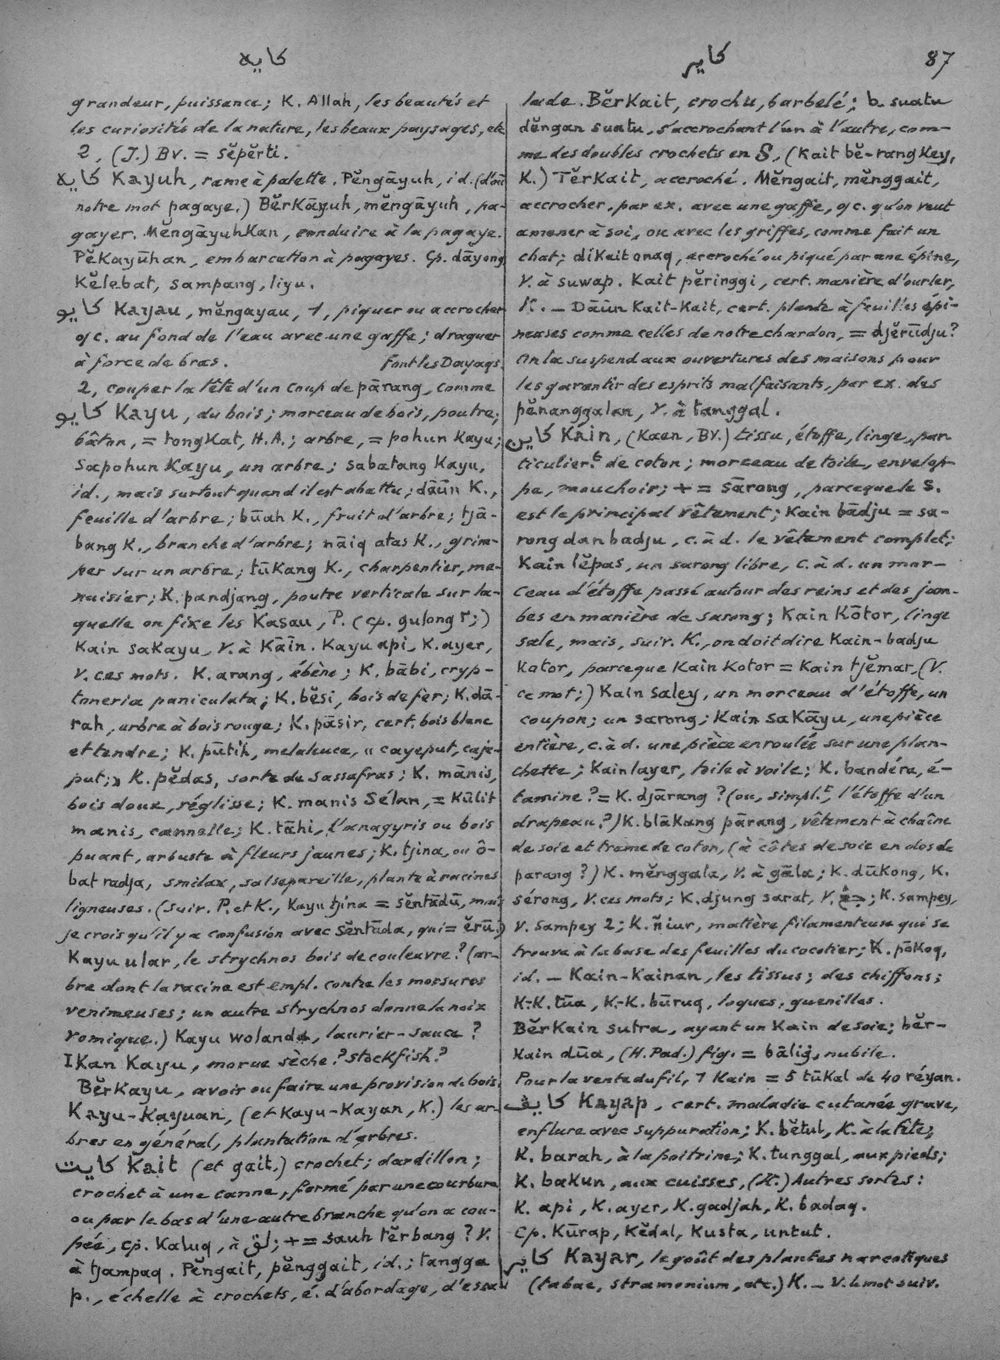 كايه
كاير
87
grandeur, puissance; K. Allah, les beautés et
les curiosités de la nature, les beaux paysages, etc
2, (J.) Bv. = sĕpĕrti.
كايه Kayuh, rame à palette. Pĕngāyuh, id. (d'où
notre mot pagaye.) BĕrKāyuh, mĕngāyuh, pa-
gayer. MĕngāyuhKan, conduire à la pagaye.
PĕKayūhan, embarcation à pagayes. Cp. dāyong
Kĕlebat, sampang, liyu.
كايو Kayau, mĕngayau, 1, piquer ou accrocher
qc. au fond de l'eau avec une gaffe; draguer
à force de bras. font les Dayaqs.
2, couper la tête d'un coup de pārang, comme
كايو Kayu, du bois; morceau de bois, poutre;
bâton, = tongKat, H.A.; arbre, = pohun Kayu;
sapohun Kayu, un arbre; sabatang Kayu,
id., mais surtout quand il est abattu; dāūn K.,
feuille d'arbre; būah K., fruit d'arbre; tjā-
bang K., branche d'arbre; nāiq atas K., grim-
per sur un arbre; tūKang K., charpentier, me-
nuisier; K. pandjang, poutre verticale sur la-
quelle on fixe les Kasau, P. (cp. gulong r;)
Kain saKayu, V. à Kāīn. Kayu api, K. ayer,
V. ces mots. K. arang, ébène; K. bābi, cryp-
toneria paniculata; K. bĕsi, bois de fer; K. dā-
rah, arbre à bois rouge; K. pāsir, cert. bois blanc
et tendre; K. pūtih, melaleuca, « cayeput, caje-
put; » K. pĕdas, sorte de sassafras; K. mānis,
bois doux, réglisse; K. manis Sélan, = Kūlit
manis, cannelle; K. tāhi, l'anagyris ou bois
puant, arbuste à fleurs jaunes; K. tjina, ou ô-
bat radja, smilax, salsepareille, plante à racines
ligneuses. (Suiv. P. et K., Kayu tjina = sĕntādū, mais
je crois qu'il y a confusion avec Sĕntūda, qui = ĕrū.)
Kayu ular, le strychnos bois de couleuvre? (ar-
bre dont la racine est empl. contre les morsures
venimeuses; un autre strychnos donne la noix
vomique.) Kayu woланda, laurier-sauce?
IKan Kayu, morue sèche? Stockfish?
BĕrKayu, avoir ou faire une provision de bois.
Kayu-Kayuan, (et Kayu-Kayan, K.) les ar-
bres en général, plantation d'arbres.
كايت Kait (et gait,) crochet; dardillon;
crochet à une canne, formé par une courbure
ou par le bas d'une autre branche qu'on a cou-
pée, cp. Kaluq, à لق; + = sauh tĕrbang? V.
à tjampaq. Pĕngait, pĕnggait, id.; tangga
p., échelle à crochets, é. d'abordage, d'esca-
lade. BĕrKait, crochu, barbelé; b. suatu
dĕngan suatu, s'accrochant l'un à l'autre, com-
me des doubles crochets en S, (Kait bĕ-rangKey,
K.) TĕrKait, accroché. Mĕngait, mĕnggait,
accrocher, par ex. avec une gaffe, qc. qu'on veut
amener à soi, ou avec les griffes, comme fait un
chat; diKait onaq, accroché ou piqué par une épine,
V. à suwap. Kait pĕringgi, cert. manière d'ourler,
K. — Dāūn Kait-Kait, cert. plante à feuilles épi-
neuses comme celles de notre chardon, = djĕrūdju?
On la suspend aux ouvertures des maisons pour
les garantir des esprits malfaisants, par ex. des
pĕnanggalan, V. à tanggal.
كاين Kāin, (Kaen, BV.) tissu, étoffe, linge, par-
ticulier.t de coton; morceau de toile, envelop-
pe, mouchoir; + = sārong, parceque le S.
est le principal vêtement; Kain bādju = sa-
rong dan badju, c. à d. le vêtement complet;
Kain lĕpas, un sarong libre, c. à d. un mor-
ceau d'étoffe passé autour des reins et des jam-
bes en manière de sarong; Kain Kōtor, linge
sale, mais, suiv. K., on doit dire Kain-badju
Kotor, parceque Kain Kotor = Kain tjĕmar, (V.
ce mot;) Kain saley, un morceau d'étoffe, un
coupon; un sarong; Kain saKāyu, une pièce
entière, c. à d. une pièce enroulée sur une plan-
chette; Kain layer, toile à voile; K. bandéra, é-
tamine? = K. djārang? (ou, simpl.t, l'étoffe d'un
drapeau?) K. blāKang pārang, vêtement à chaîne
de soie et trame de coton, (à côtes de soie en dos de
parang?) K. mĕnggala, V. à gāla; K. dūKong, K.
sérong, V. ces mots; K. djung sarat, V. ; K. sampey,
V. sampey 2; K. ñiur, matière filamenteuse qui se
trouve à la base des feuilles du cocotier; K. pōKoq,
id. — Kain-Kainan, les tissus; des chiffons;
K.-K. tūa, K.-K. būruq, loques, guenilles.
BĕrKain sutra, ayant un Kain de soie; bĕr-
Kain dūa, (H. Pad.) fig. = bālig, nubile.
Pour la vente du fil, 1 Kain = 5 tūKal de 40 réyan.
كايڤ Kayap, cert. maladie cutanée grave,
enflure avec suppuration; K. bĕtul, K. à la tête;
K. barah, à la poitrine; K. tunggal, aux pieds;
K. baKun, aux cuisses, (K.) Autres sortes:
K. api, K. ayer, K. gadjah, K. badaq.
Cp. Kūrap, Kĕdal, Kusta, untut.
كاير Kayar, le goût des plantes narcotiques
(tabac, stramonium, etc.) K. — V. le mot suiv.